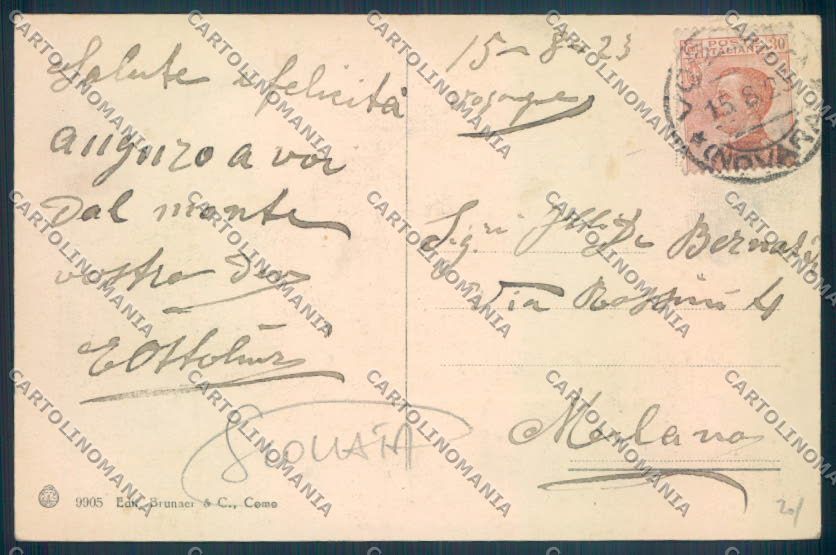 Salute e felicità
auguro a voi
Dal monte
vostro
EOttolini
15-8-23
Sig.ri
Bernas
Via Rossini 4
Milano
POSTE
ITALIANE 30
VO
15.8.2
* (NOVARA)
SCOLLATA
9905 Edit. Brunner & C., Como
20/
CARTOLINOMANIA